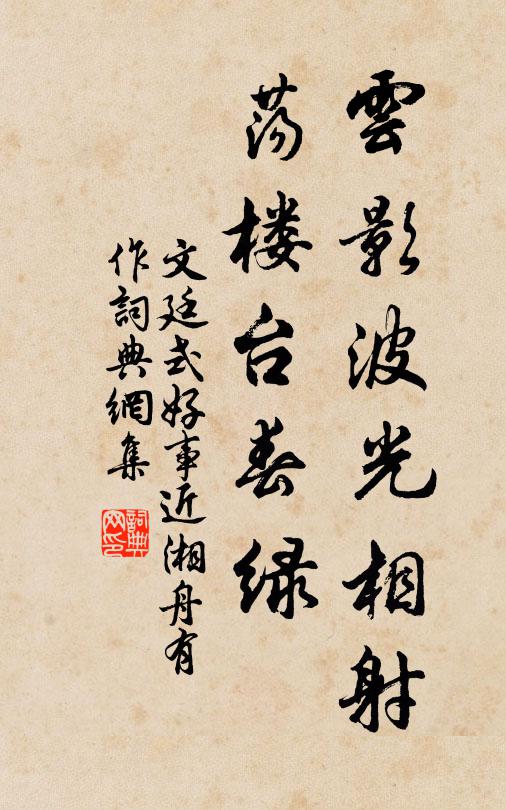 雲影波光相射
荡楼台春绿
文廷式好事近湘舟有
作詞典網集
詞典
网印